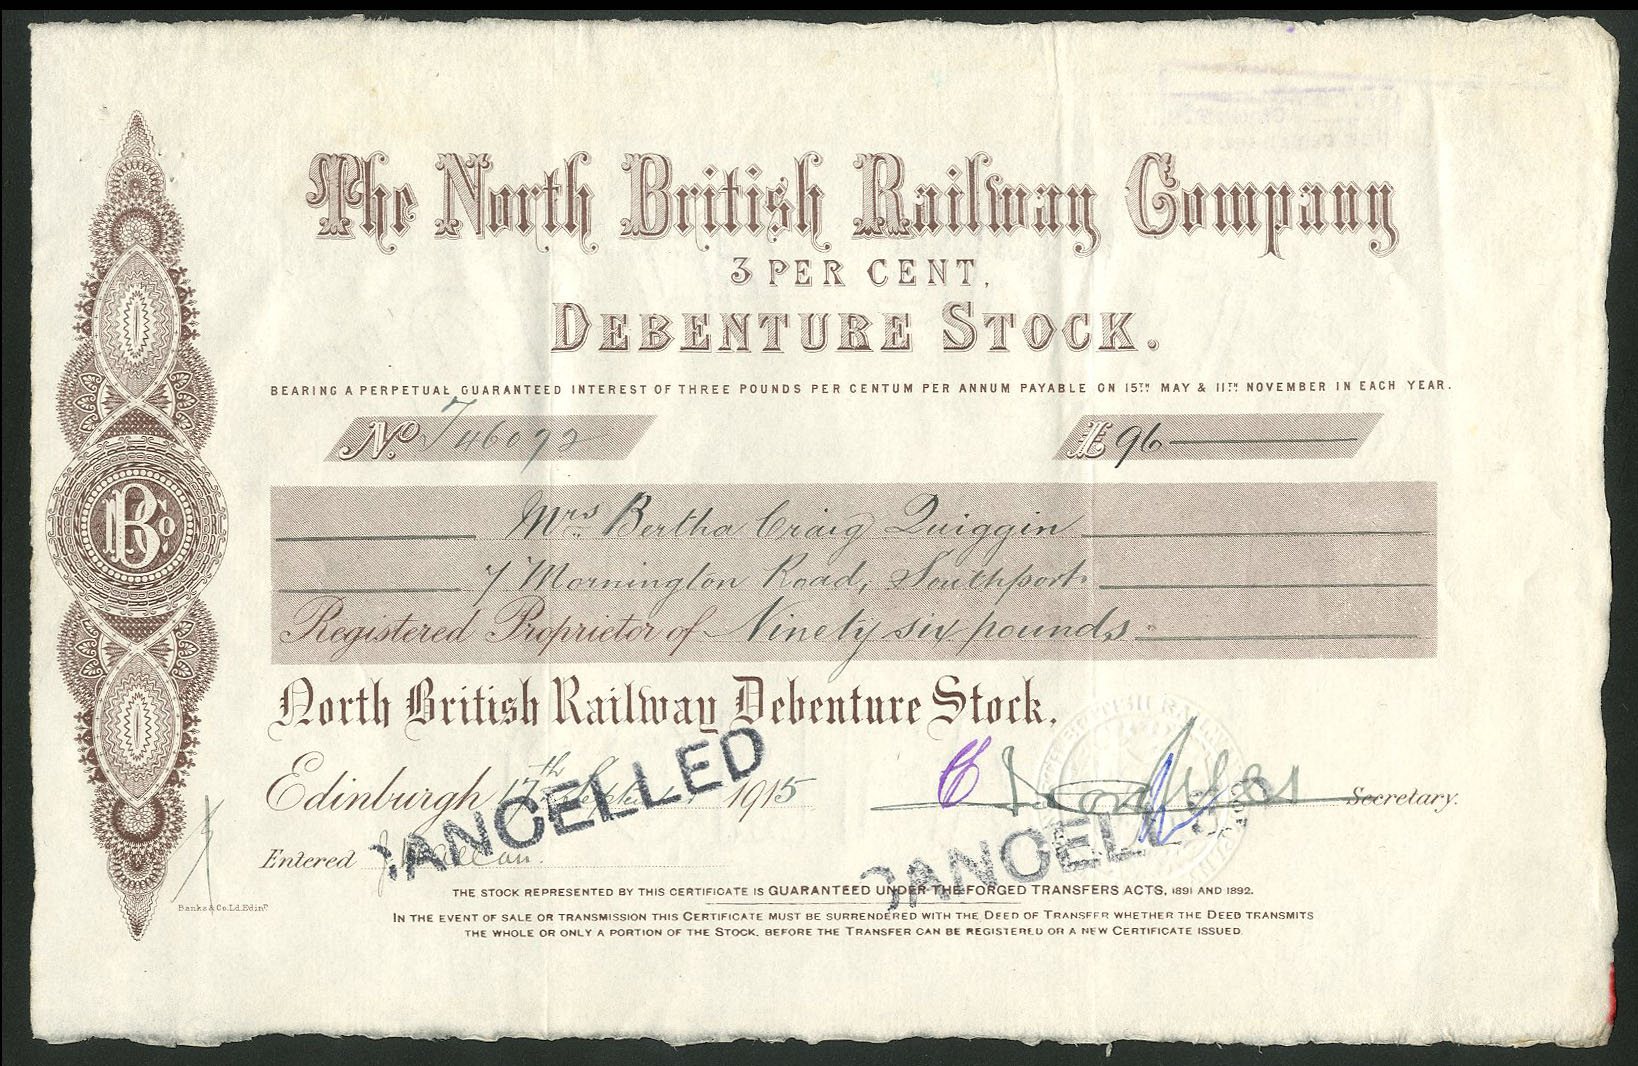 The North British Railway Company
3 PER CENT.
DEBENTURE STOCK.
BEARING A PERPETUAL GUARANTEED INTEREST OF THREE POUNDS PER CENTUM PER ANNUM PAYABLE ON 15TH MAY & 11TH NOVEMBER IN EACH YEAR.
No. T 46092 £ 96
Mrs Bertha Craig Quiggin
7 Mornington Road, Southport
Registered Proprietor of Ninety six pounds
North British Railway Debenture Stock.
Edinburgh 17th September 1915 Secretary.
CANCELLED
Entered
CANCELL
THE STOCK REPRESENTED BY THIS CERTIFICATE IS GUARANTEED UNDER THE FORGED TRANSFERS ACTS, 1891 AND 1892.
Banks & Co. Ld. Edinr.
IN THE EVENT OF SALE OR TRANSMISSION THIS CERTIFICATE MUST BE SURRENDERED WITH THE DEED OF TRANSFER WHETHER THE DEED TRANSMITS
THE WHOLE OR ONLY A PORTION OF THE STOCK, BEFORE THE TRANSFER CAN BE REGISTERED OR A NEW CERTIFICATE ISSUED.